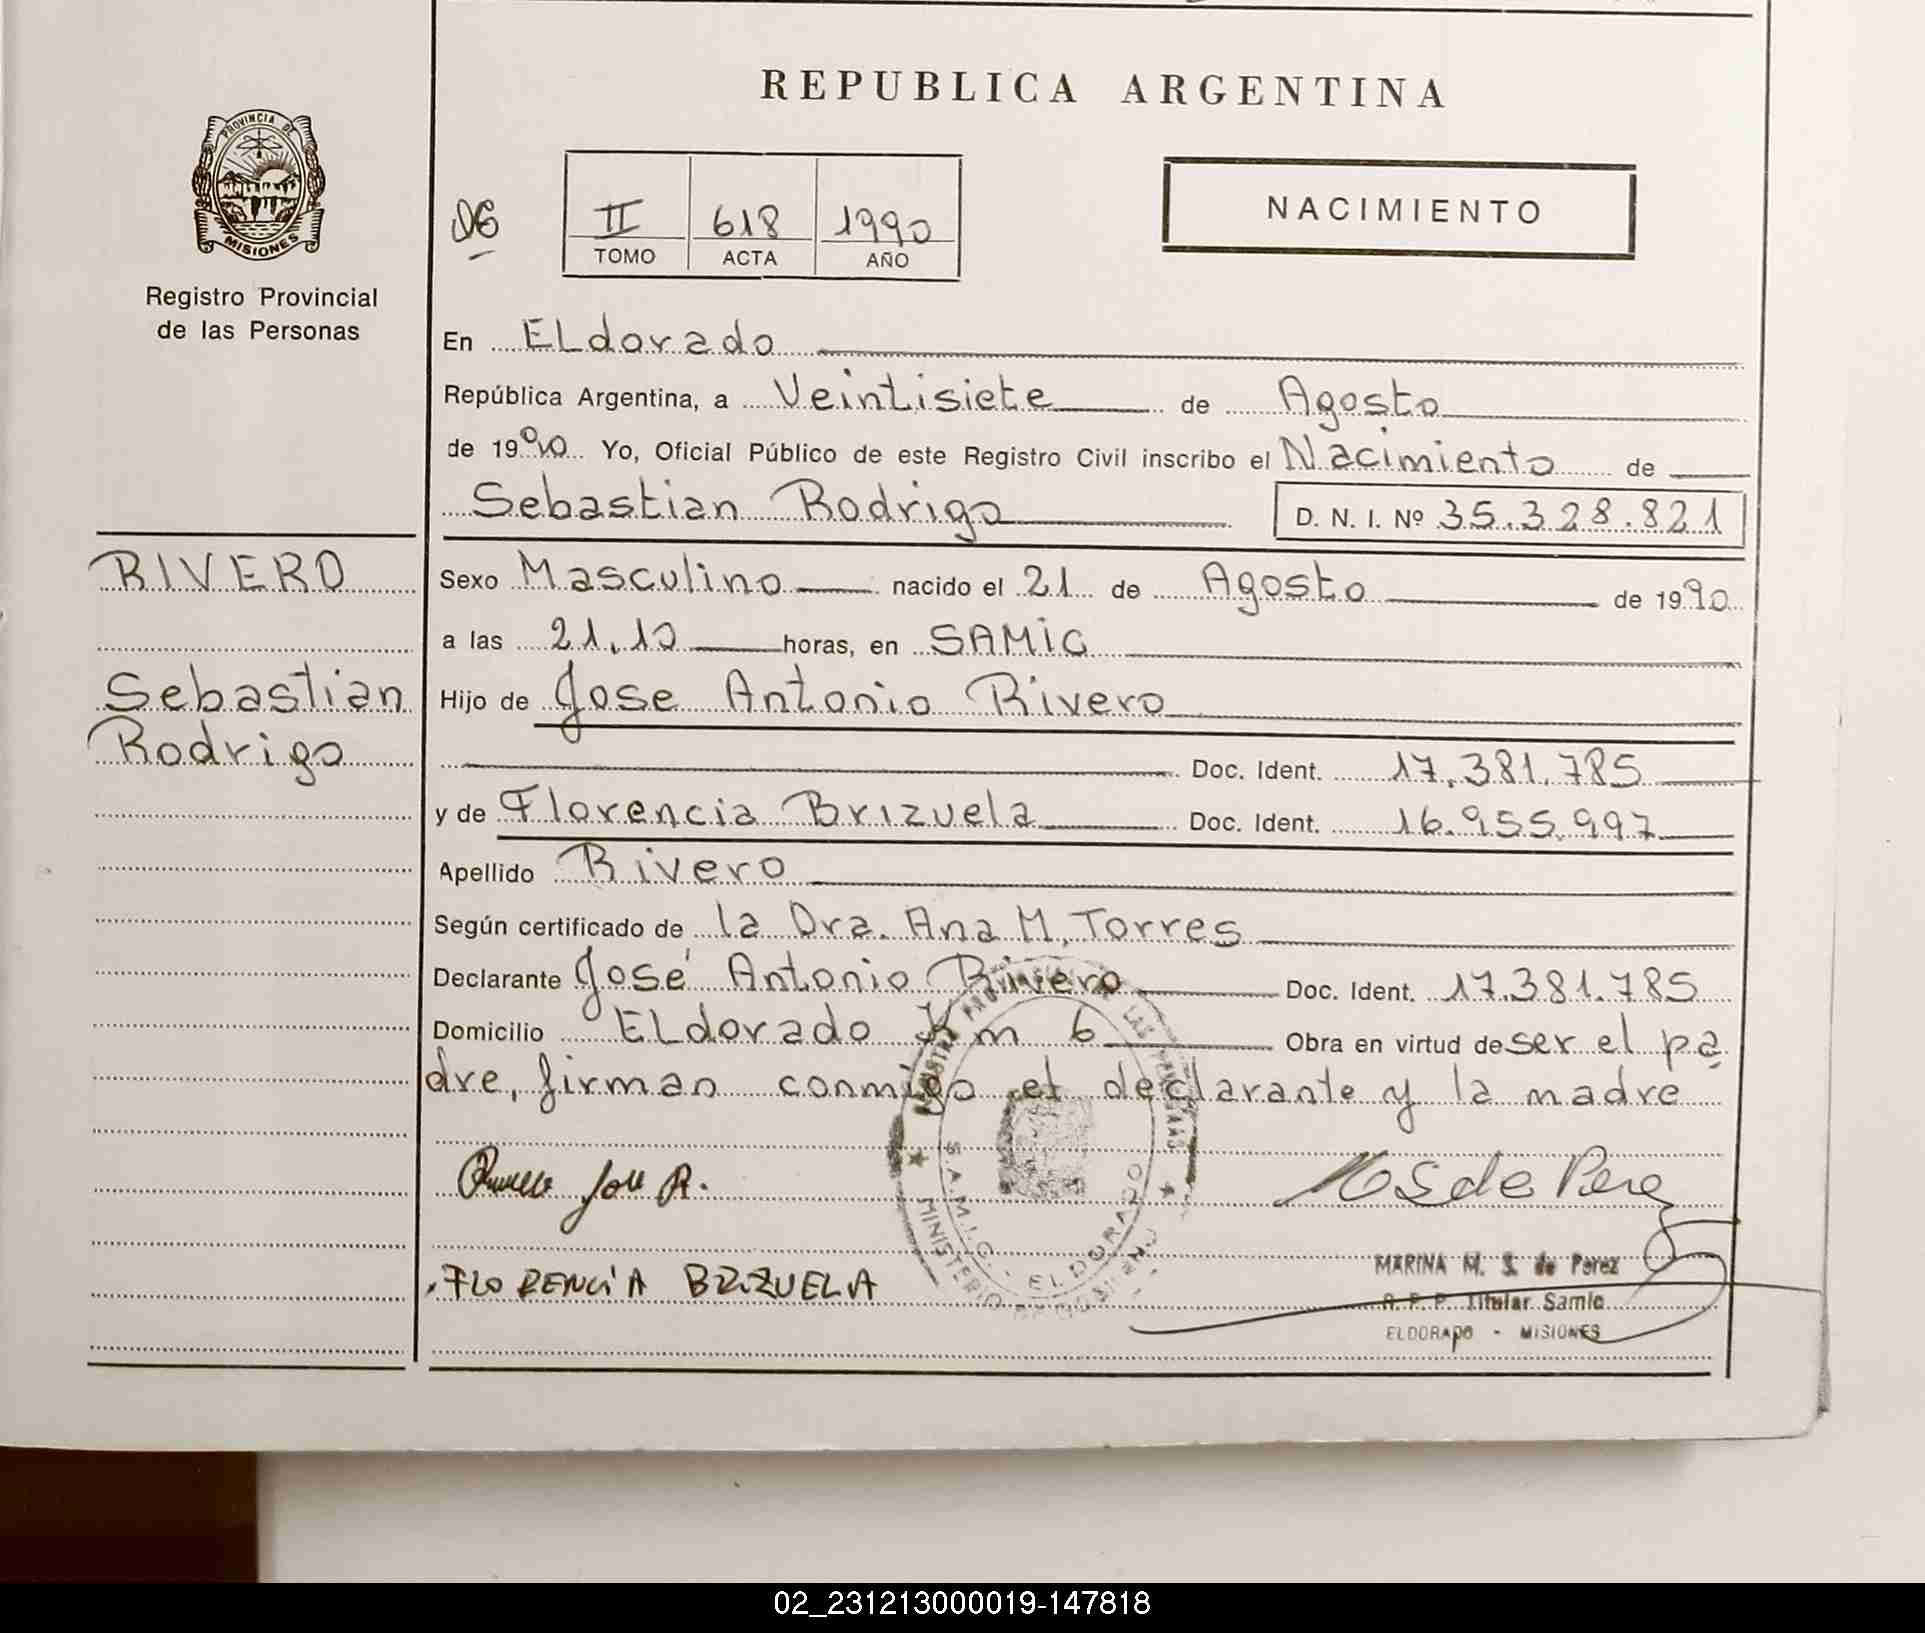 REPUBLICA ARGENTINA
PROVINCIA DE
MISIONES
Registro Provincial
de las Personas
II 618 1990
TOMO ACTA AÑO
NACIMIENTO
En ELdorado
República Argentina, a Veintisiete de Agosto
de 1990 Yo, Oficial Público de este Registro Civil inscribo el Nacimiento de
Sebastian Rodrigo D. N. I. Nº 35.328.821
RIVERO
Sebastian
Rodrigo
Sexo Masculino nacido el 21 de Agosto de 1990
a las 21,10 horas, en SAMIC
Hijo de Jose Antonio Rivero
Doc. Ident. 17.381.785
y de Florencia Brizuela Doc. Ident. 16.955.997
Apellido Rivero
Según certificado de la Dra. Ana M. Torres
Declarante José Antonio Rivero Doc. Ident. 17.381.785
Domicilio ELdorado Km 6 Obra en virtud de ser el pa
dre, firman conmigo el declarante y la madre
S.A.M.I.C. - ELDORADO
MINISTERIO
FLORENCIA BRIZUELA
MARINA M. S. de Perez
R. P. P. Titular Samic
ELDORADO - MISIONES
02_231213000019-147818